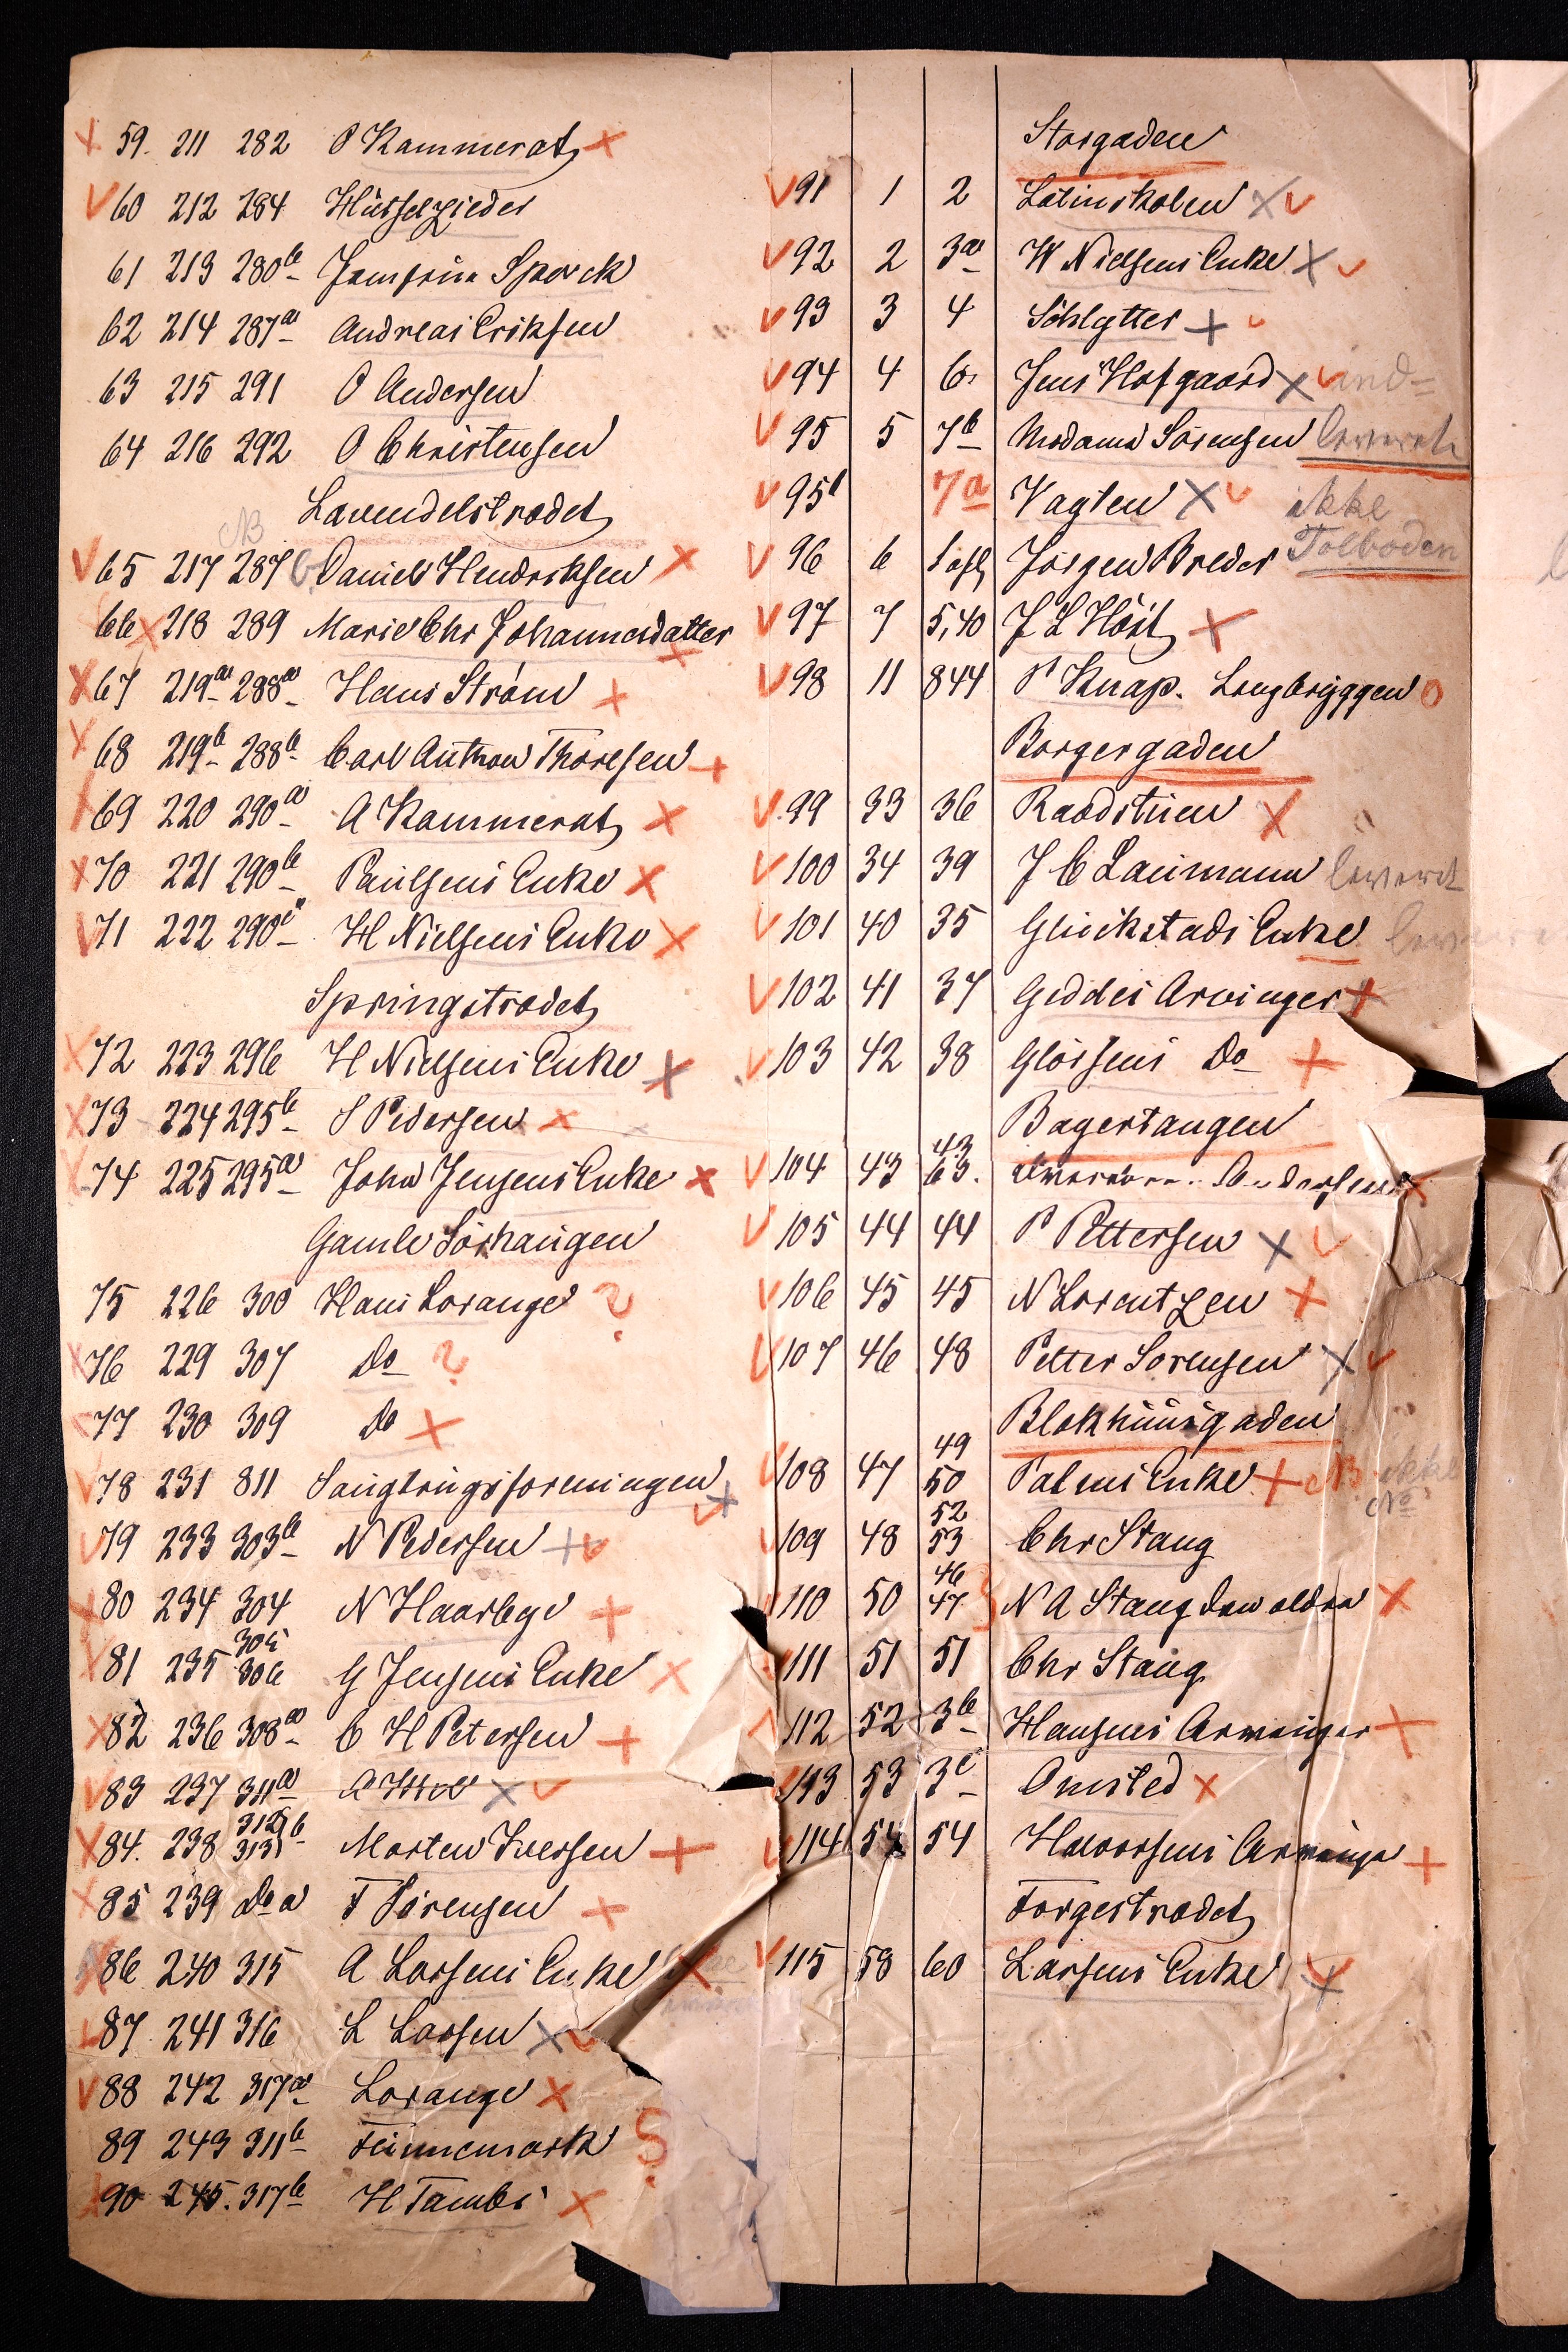 59. 211 282 P Kammerat
60 212 284
61 213 280b Sporck
62 214 287a Andreas Eriksen
63 215 291 O Andersen
64 216 292 O Christensen
Lavendelstrædet
NB
65 217 287b Daniel Hendriksen
66 218 289 Marie Chr Johannesdatter
67 219a 288a Hans Strøm
68 219b 288b Carl Anthon Thoresen
69 220 290a A Kammerat
70 221 290b Paulsens Enke
71 222 290c H Nielsens Enke
Springstrædet
72 223 296 H Nielsens Enke
73 224 295b S Pedersen
74 225 295a John Jensens Enke
Gamle Sørhaugen
75 226 300 Hans Lorange ?
76 229 307 Do ?
77 230 309 Do
78 231 811
79 233 303b N Pedersen
80 234 304 N Haarbye
305
81 235 306 G Jensens Enke
82 236 308a C H Petersen
83 237 311a A
312
84. 238 313 b Morten Iversen
85 239 Do a T Sørensen
86 240 315 A Larsens Enke
87. 241 316 L Larsen
88 242 317a Lorange
89 243 311b Finnemark ?
90 245. 317b H Tambs
Storgaden
91 1 2 Latinskolen
92 2 3a W Nielsens Enke
93 3 4 Schlytter
94 4 6. Jens Hofgaard ind-
95 5 7b Madame Sørensen leveret
95 1 7a Vagten ikke
96 6 Jørgen Breder Tolboden
97 7 5,40 J L Høst
98 11 844 P Knap. Langbryggen
Borgergaden
99 33 36 Raadstuen
100 34 39 J C Laumann leveret
101 40 35 Glückstads Enke
102 41 37 Geddes Arvinger
103 42 38 Glørsens Do
Bagertangen
43
104 43 63. Andersens
105 44 44 P Pettersen
106 45 45 N Lorentzen
107 46 48 Petter Sørensen
Blokhuusgaden
49
108 47 50 Palms Enke NB ikke
No
52
109 48 53 Chr Stang
46
110 50 47 N A Stang den ældre
111 51 51 Chr Stang
112 52 3b Hansens Arvinger
113 53 3c Omsted
114 54 54 Halvorsens Arvinger
Torgestrædet
115 58 60 Larsens Enke